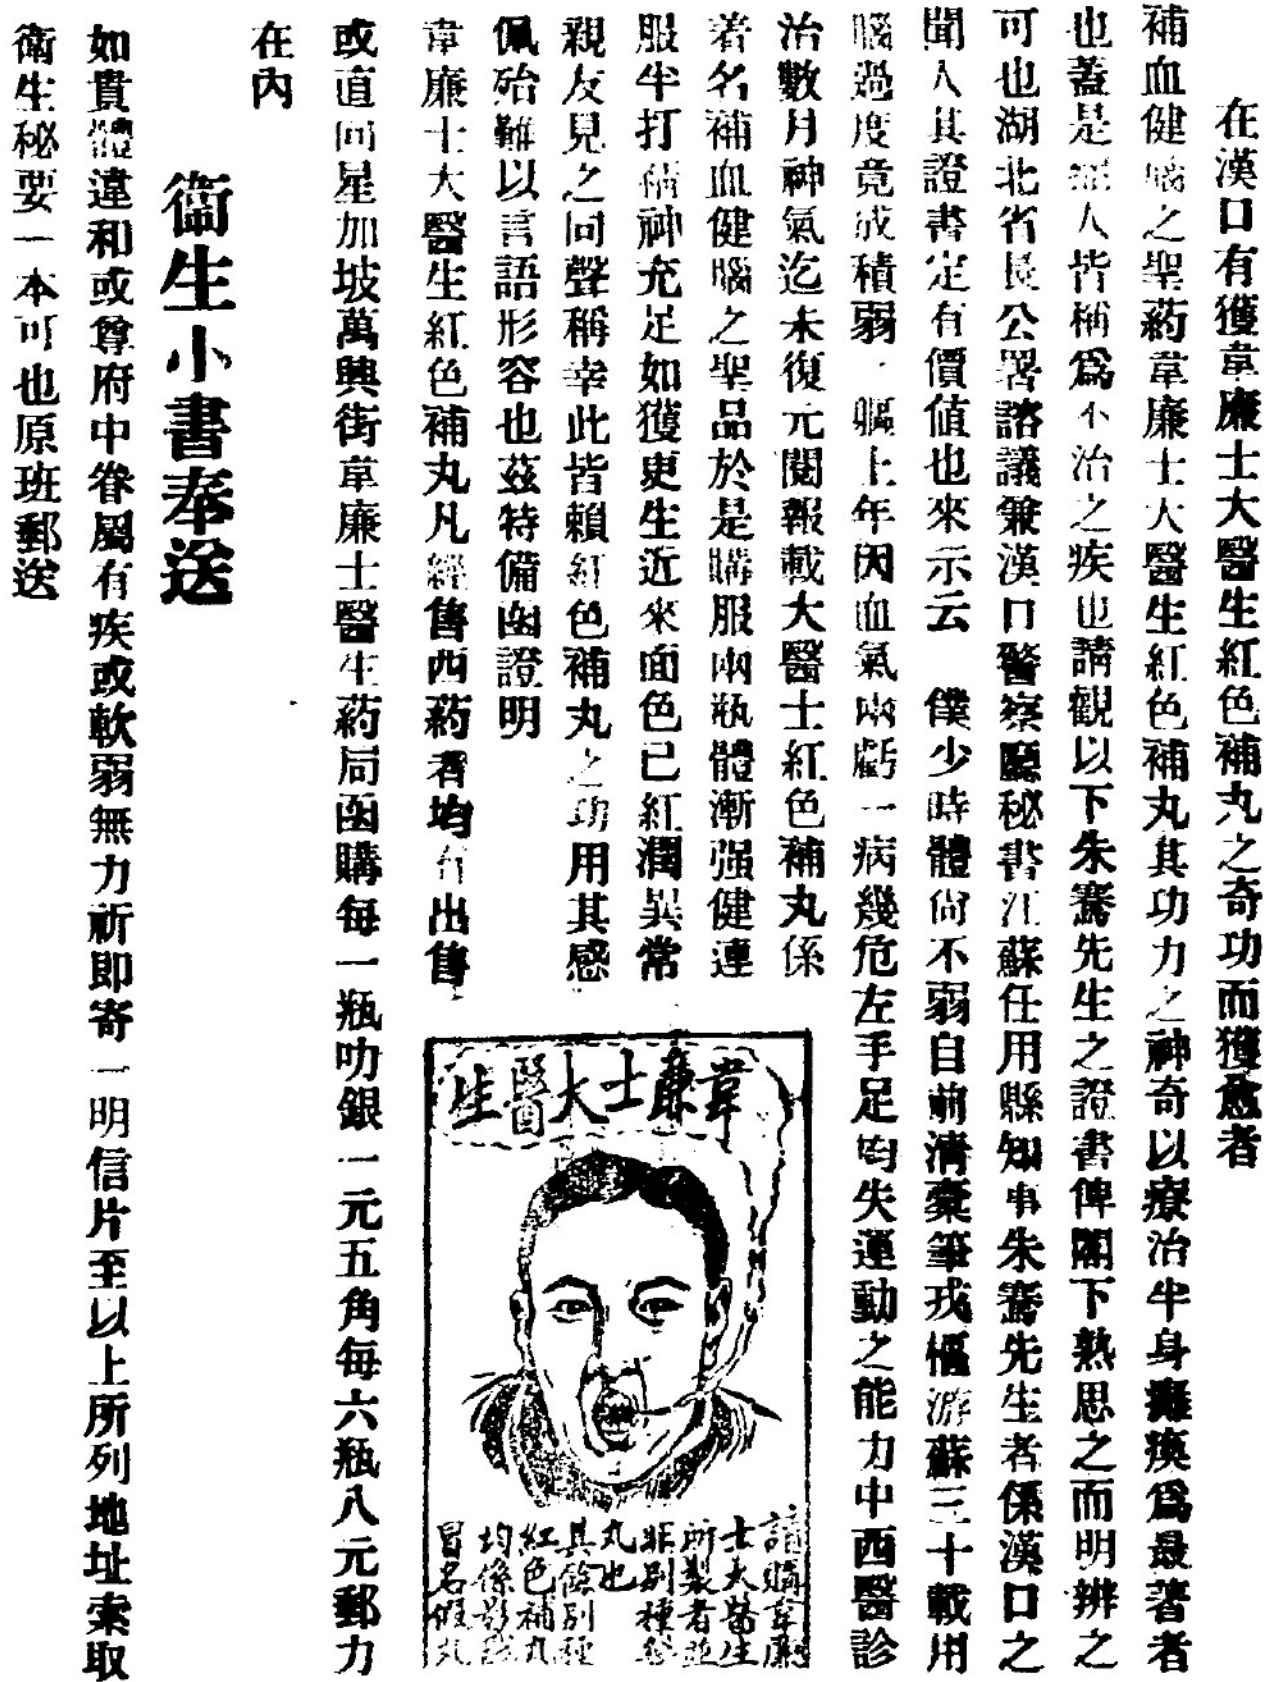 在漢口有獲韋廉士大醫生紅色補丸之奇功而獲愈者
補血健腦之聖葯韋廉士大醫生紅色補丸其功力之神奇以療治半身癱瘓爲最著者
也蓋是症人皆稱爲不治之疾也請觀以下朱騫先生之證書俾閣下熟思之而明辨之
可也湖北省長公署諮議兼漢口警察廳秘書江蘇任用縣知事朱騫先生者係漢口之
聞人其證書定有價値也來示云 僕少時體尙不弱自前淸橐筆戎幄游蘇三十載用
腦過度竟成積弱 軀上年因血氣兩虧一病幾危左手足均失運動之能力中西醫診
治數月神氣迄未復元閱報載大醫士紅色補丸係
着名補血健腦之聖品於是購服兩瓶體漸强健連
服半打精神充足如獲更生近來面色已紅潤異常
親友見之同聲稱幸此皆賴紅色補丸之功用其感
佩殆難以言語形容也茲特備函證明
韋廉士大醫生紅色補丸凡經售西葯者均有出售
或直向星加坡萬興街韋廉士醫生葯局函購每一瓶叻銀一元五角每六瓶八元郵力
在內
衞生小書奉送
如貴體違和或尊府中眷屬有疾或軟弱無力祈即寄一明信片至以上所列地址索取
衛生秘要一本可也原班郵送
韋廉士大醫生
請購韋廉
士大醫生
所製者並
非別種
丸也
其餘別種
紅色補丸
均係影
冒名假丸